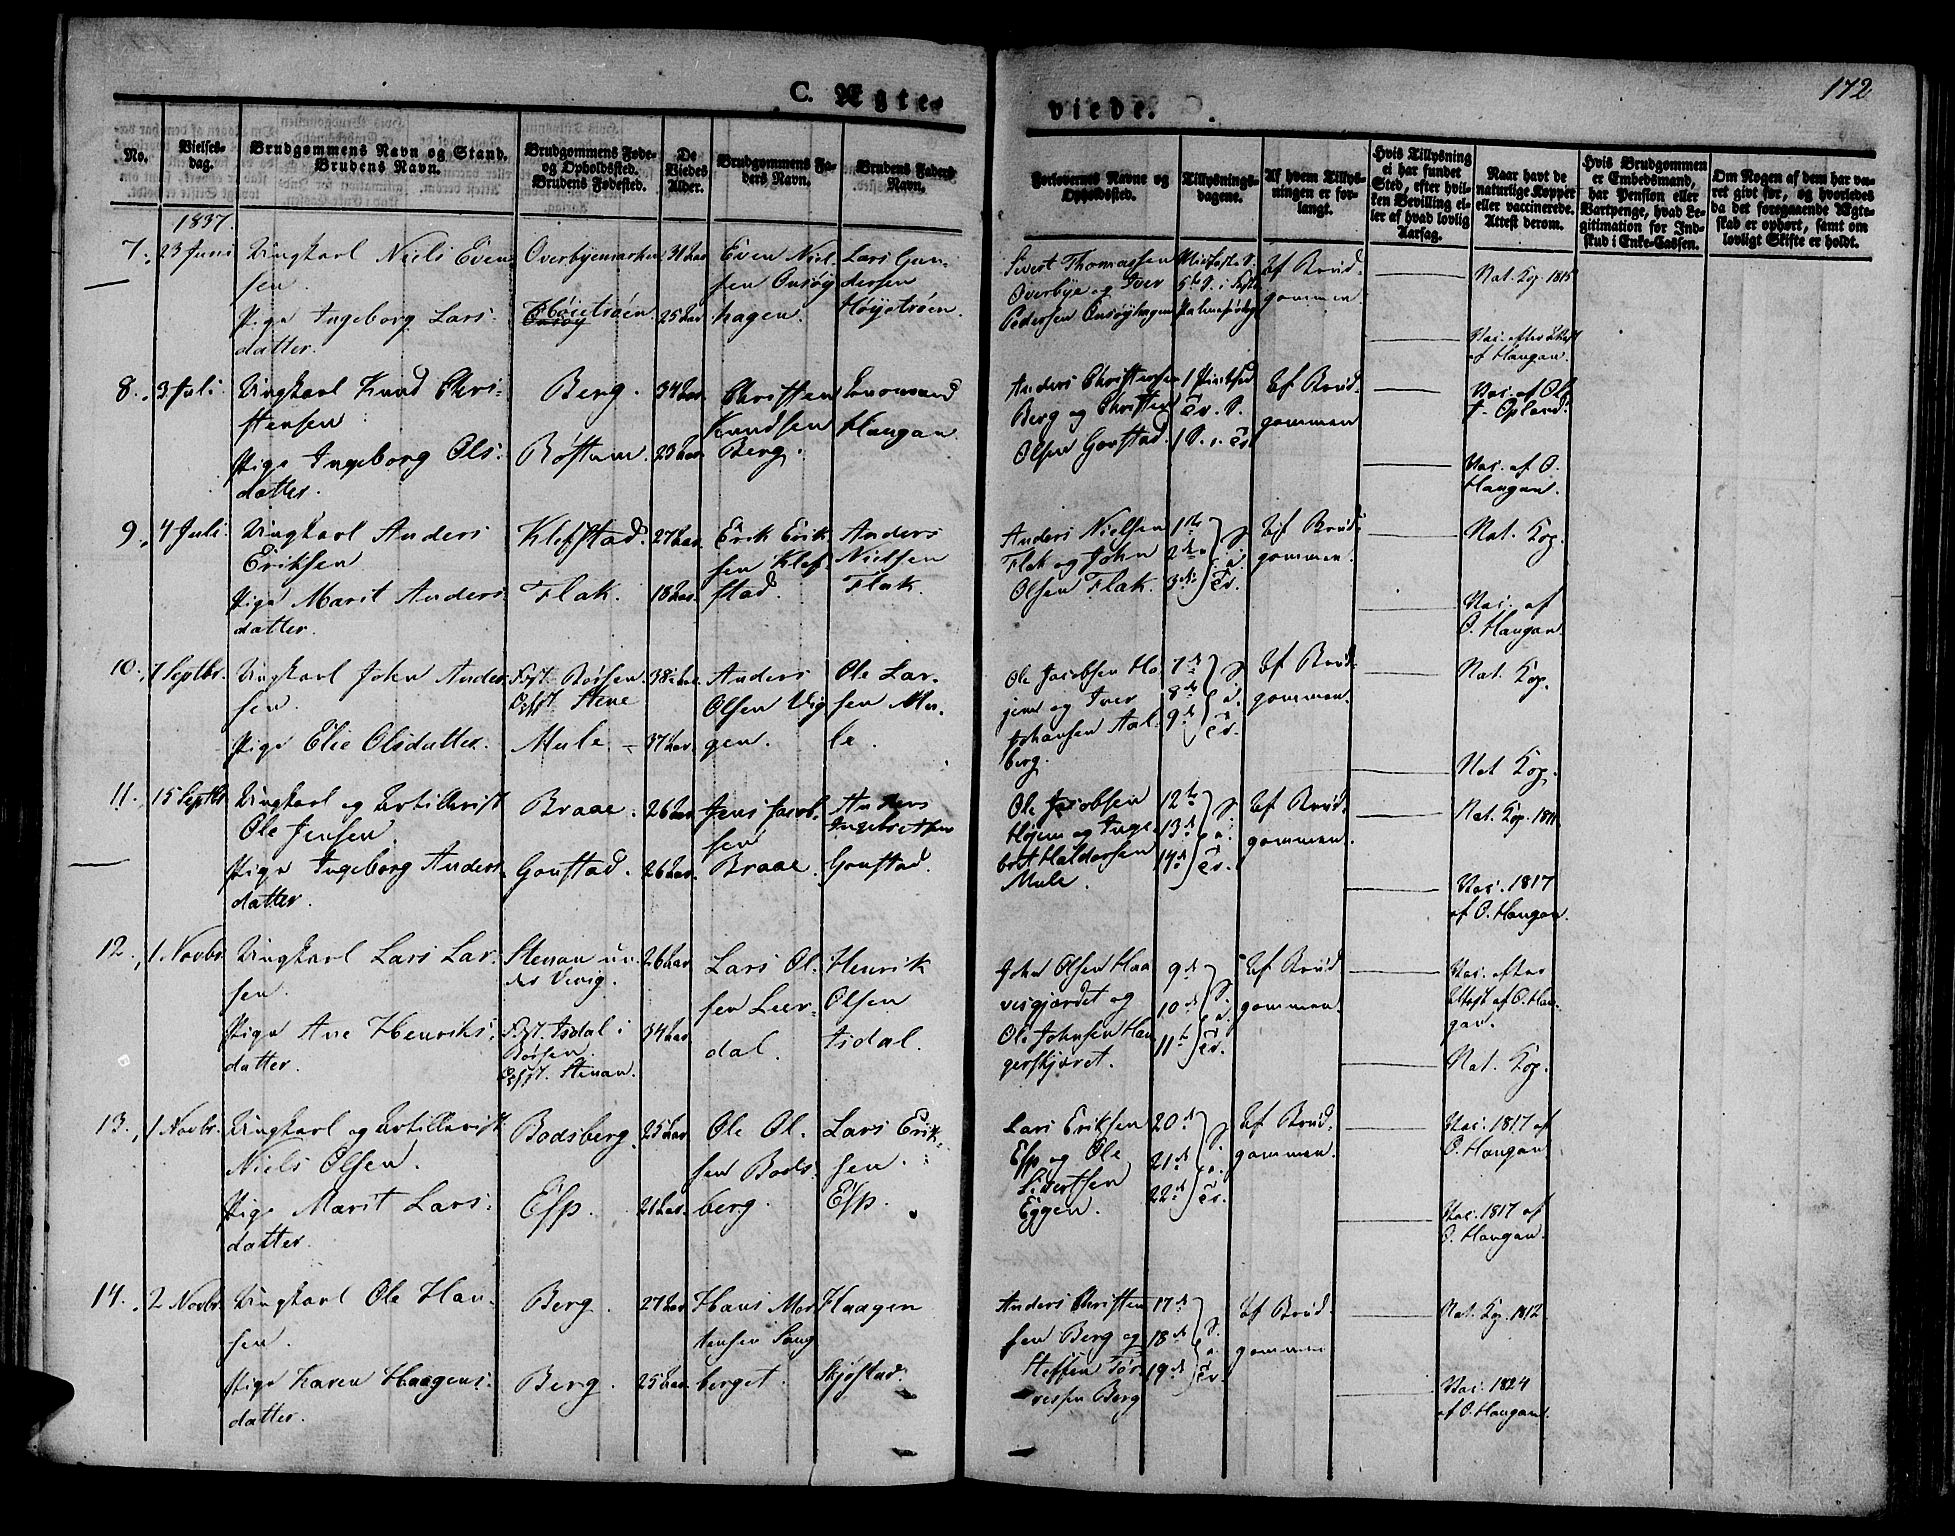 172
C. Ægte=
viede.
No.
Vielses=
dag.
Brudgommens Navn og Stand.
Brudens Navn.
Brudgommens Føde=
og Opholdssted.
Brudens Fødested.
De
Viedes
Alder.
Brudgommens Fa=
ders Navn.
Brudens Faders
Navn.
Forlovernes Navne og
Opholdssted.
Tillysnings=
dagene.
Af hvem Tillys=
ningen er for=
langt.
Hvis Tillysning
ei har fundet
Sted, efter hvil=
ken Bevilling el=
ler af hvad lovlig
Aarsag.
Naar havt de
naturlige Kopper
eller vaccinerede.
Attest derom.
Hvis Brudgommen
er Embedsmand,
har Pension eller
Vartpenge, hvad Le=
gitimation for Ind=
skud i Enke=Cassen.
Om Nogen af dem har væ=
ret gift før, og hvorledes
da det foregaaende Ægte=
skab er ophørt, samt om
lovligt Skifte er holdt.
1837.
7. 23 Juni Ungkarl Niels Even
sen.
Pige Ingeborg Lars-
datter.
Overbyemarken
Høietrøen
31 Aar
25 Aar
Even Niel
sen Onsøy
hagen.
Lars Gun-
dersen
Høyetrøen.
Sivert Thomassen
Overbye og Iver
Pedersen Onsøyhagen
Af Brud-
gommen.
Nat. Kop. 1815
Vac. efter Attest
af Haugan.
8. 3 Juli Ungkarl Knud Chri-
stensen
Pige Ingeborg Ols-
datter.
Berg.
Røstum.
34 Aar.
23 Aar.
Christen
Knudsen
Berg.
Haugan.
Anders Christensen
Berg og Christen
Olsen Gaustad.
Af Brud-
gommen
Vac. af O.
Haugan.
9. 4 Juli. Ungkarl Anders
Eriksen
Pige Marit Anders
datter.
Klefstad.
Flak.
27 Aar.
18 Aar.
Erik Erik
sen Klef
stad.
Anders
Nielsen
Flak.
Anders Nielsen
Flak og John
Olsen Flak.
1ste
2de
3de
S.
e.
Tr.
Af Brud
gommen.
Nat. Kop.
Vac. af
O. Haugan.
10. 7 Septbr. Ungkarl John Ander
sen.
Pige Elie Olsdatter.
Fdst. Børsen
Opst. Stene
Mule.
38 Aar
37 Aar.
Anders
Olsen Vig
gen.
Ole Lar-
sen Mu-
le.
Ole Jacobsen Ho
jem og Iver
Johansen Aal
berg.
7de
8de
9de
Af Brud-
gommen.
Nat. Kop.
Nat Kop.
11. 15 Septbr Ungkarl og Artillerist
Ole Jensen
Pige Ingeborg Anders
datter.
Braae.
Gaustad.
26 Aar
26 Aar.
Jens Jacob-
sen
Braae.
Anders
Ingebretsen
Gaustad.
Ole Jacobsen
Højem og Inge-
bret Haldorsen
Mule.
12te
13de
14de
Af Brud-
gommen.
Nat. Kop. 1811
Vac. 1817
af O. Haugan.
12. 1 Novbr. Ungkarl Lars Lar-
sen.
Pige Ane Henriks-
datter.
Stenan un-
der Viig.
Fdst. Isdal i
Børsen.
Opst. Stenan.
26 Aar
34 Aar
Lars Ol-
sen Leer-
dal.
Henrik
Olsen
Isdal.
John Olsen Haa
vesgjærdet og
Ole Johnsen Hau
gerskjæret.
9de
10de
11te
Af Brud
gommen.
Vac. efter
Attest af O. Hau-
gan.
Nat. Kop.
13. 1 Novbr. Ungkarl og Artillerist
Niels Olsen.
Pige Marit Lars-
datter.
Bodsberg.
Esp.
25 Aar
21 Aar.
Ole Ol-
sen Bods-
berg.
Lars Erik-
sen.
Esp.
Lars Eriksen
Esp og Ole
Sivertsen
Eggen.
20de
21de
22de
Af Brud-
gommen.
Vac. 1817 af
O. Haugan
Vac. 1817 af
O. Haugan.
14. 2 Novbr. Ungkarl Ole Han-
sen.
Pige Karen Haagens-
datter.
Berg.
Berg.
27 Aar
25 Aar
Hans Mor
tensen Saug
berget.
Haagen
Skjøstad.
Anders Christen
sen Berg og
Steffen Tør
resen Berg
17de
18de
19de
Af Brud-
gommen
Nat. Kop. 1812.
Vac. 1824
af O. Haugan.